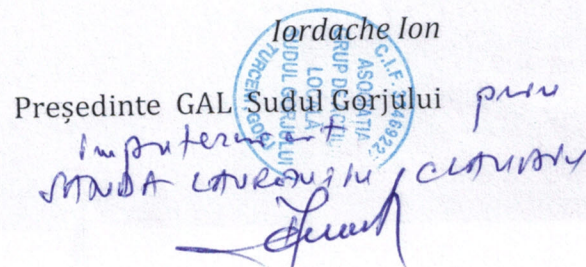 Iordache Ion
Președinte GAL Sudul Gorjului prin
împuternicit
SANDA LAURENȚIU CLAUDIU
C.I.F.
ASOCIAȚIA
GRUP DE ACȚIUNE
LOCALĂ
SUDUL GORJULUI
TURCENI GORJ